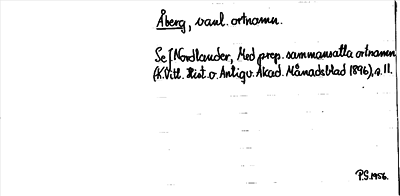 Åberg, vanl. ortnamn.
Se J. Nordlander, Med prep. sammansatta ortnamn
(K. Vitt. Hist. o. Antiqv. Akad. Månadsblad 1896), s. 11.
P.G. 1956.